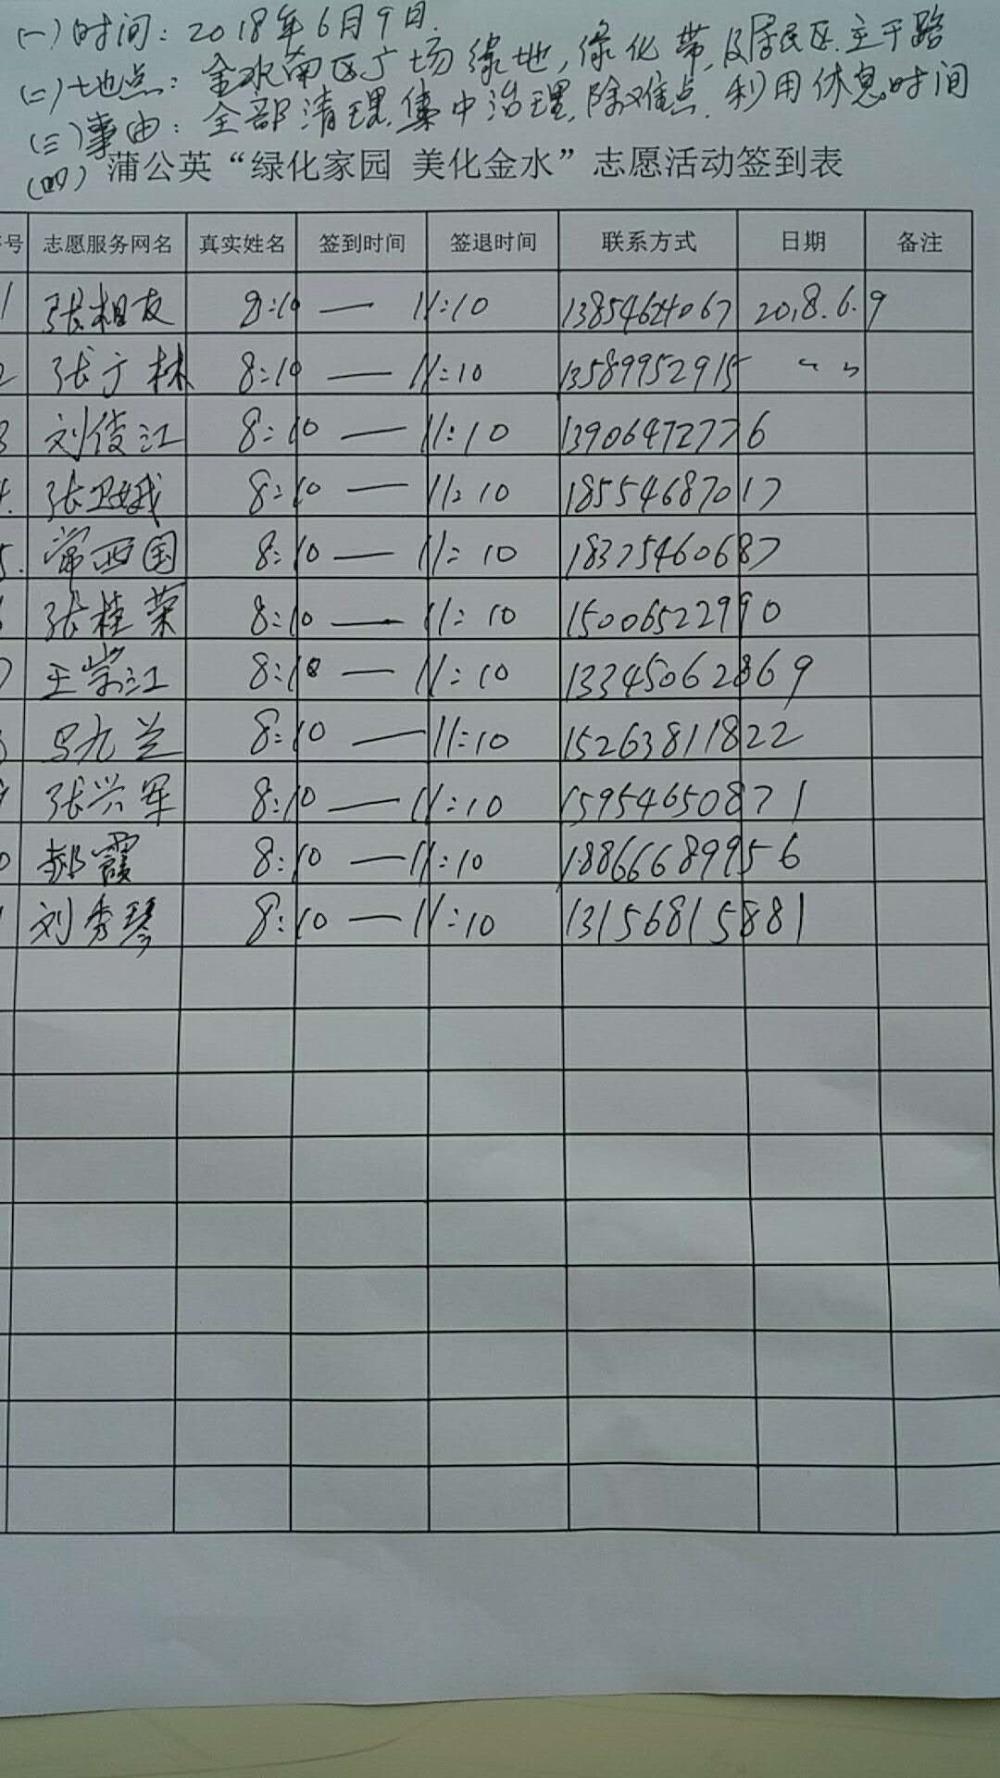 (一)时间：2018年6月9日.
(二)地点：金水南区广场绿地，绿化带，及居民区.主干路
(三)事由：全部清理.集中治理.除难点.利用休息时间
(四)蒲公英“绿化家园 美化金水”志愿活动签到表
号 志愿服务网名 真实姓名 签到时间 签退时间 联系方式 日期 备注
1 张相友 8:10 — 11:10 13854624067 2018.6.9
2 张广林 8:10 — 11:10 13589952915 〃
3 刘俊江 8:10 — 11:10 13906472776
4. 张卫娥 8:10 — 11:10 18554687017
5. 常西国 8:10 — 11:10 18325460687
张桂荣 8:10 — 11:10 15006522990
7 王崇江 8:10 — 11:10 13345062869
马九兰 8:10 — 11:10 15263811822
张兴军 8:10 — 11:10 15954650871
0 郝霞 8:10 — 11:10 18866689956
1 刘秀琴 8:10 — 11:10 13156815881